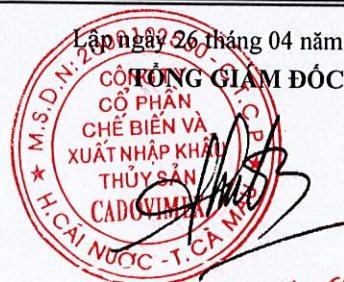 Lập ngày 26 tháng 04 năm
TỔNG GIÁM ĐỐC
M.S.D.N: - C.T.C.P
CÔNG TY
CỔ PHẦN
CHẾ BIẾN VÀ
XUẤT NHẬP KHẨU
THỦY SẢN
CADOVIMEX
H.CÁI NƯỚC -T.CÀ MAU